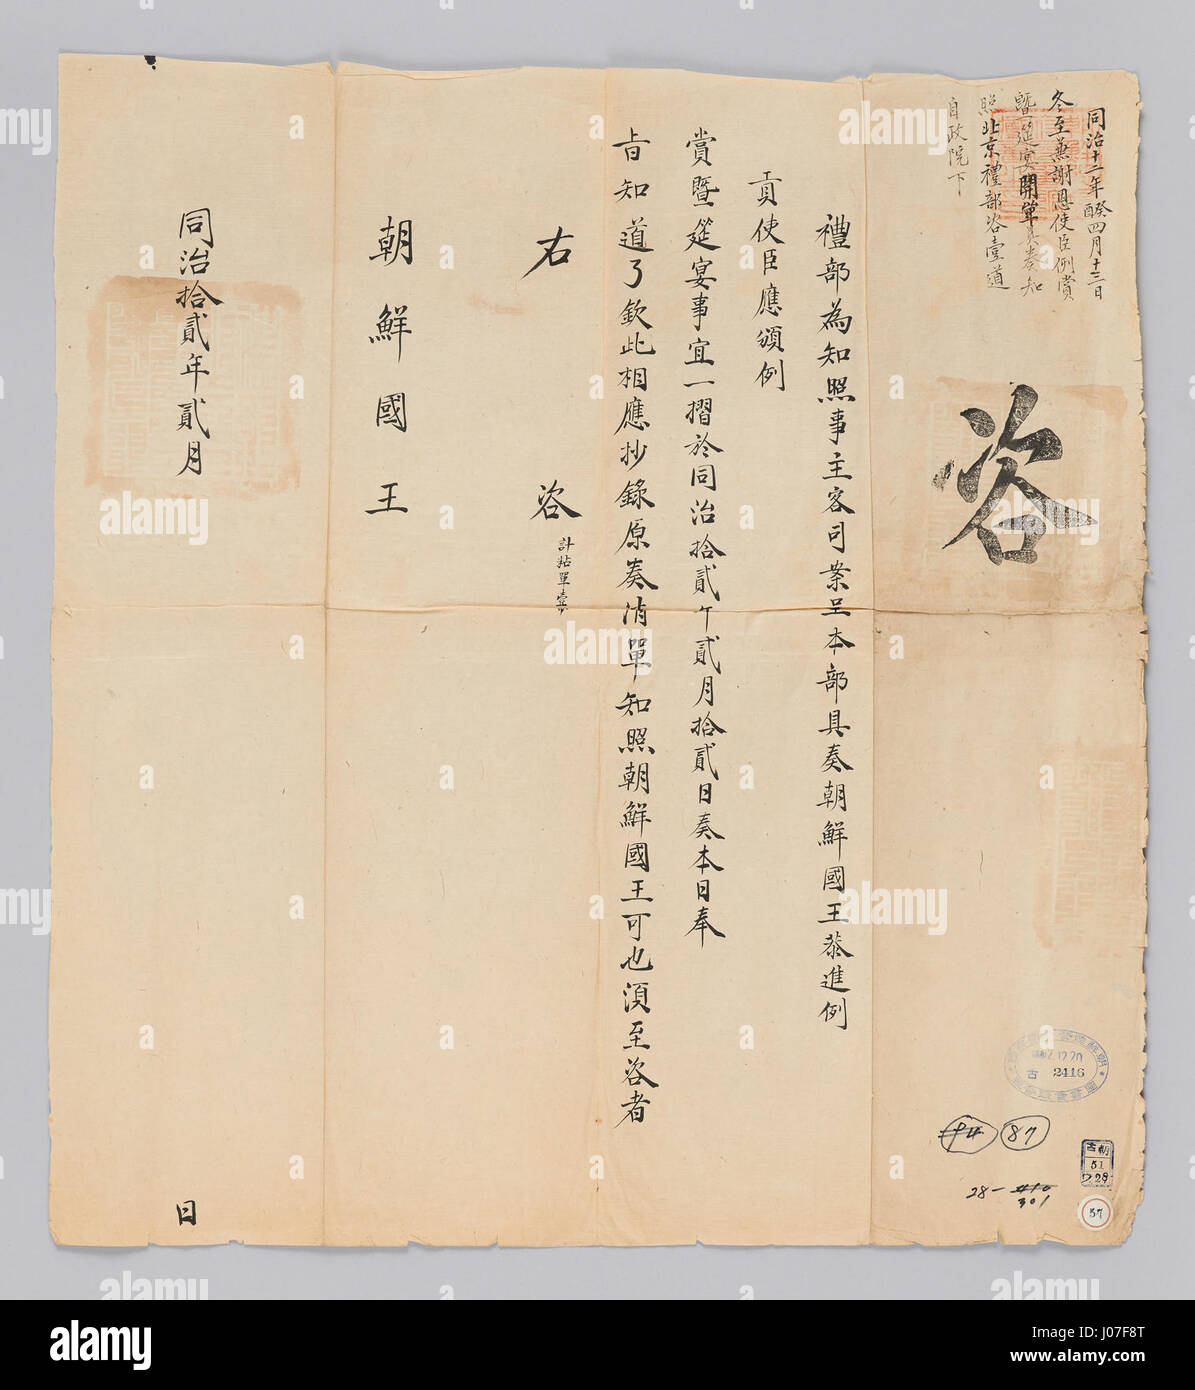 同治十二年癸酉四月十三日
冬至兼謝恩使臣例賞
暨筵宴開單具奏知
照北京禮部咨壹道
自政院下
咨
禮部為知照事主客司案呈本部具奏朝鮮國王恭進例
貢使臣應頒例
賞暨筵宴事宜一摺於同治拾貳年貳月拾貳日奏本日奉
旨知道了欽此相應抄錄原奏清單知照朝鮮國王可也須至咨者
右咨
計粘單壹
朝鮮國王
同治拾貳年貳月
日
12.20
古 2416
87
28-
301
古朝
51
57
alamy
www.alamy.com
J07F8T